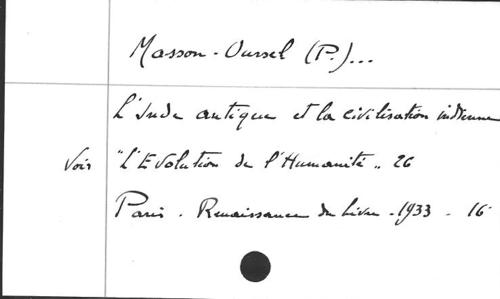 Masson-Oursel (P.)...
L'Inde antique et la civilisation indienne
Voir "L'Evolution de l'Humanité" 26
Paris. Renaissance du Livre - 1933 - 16